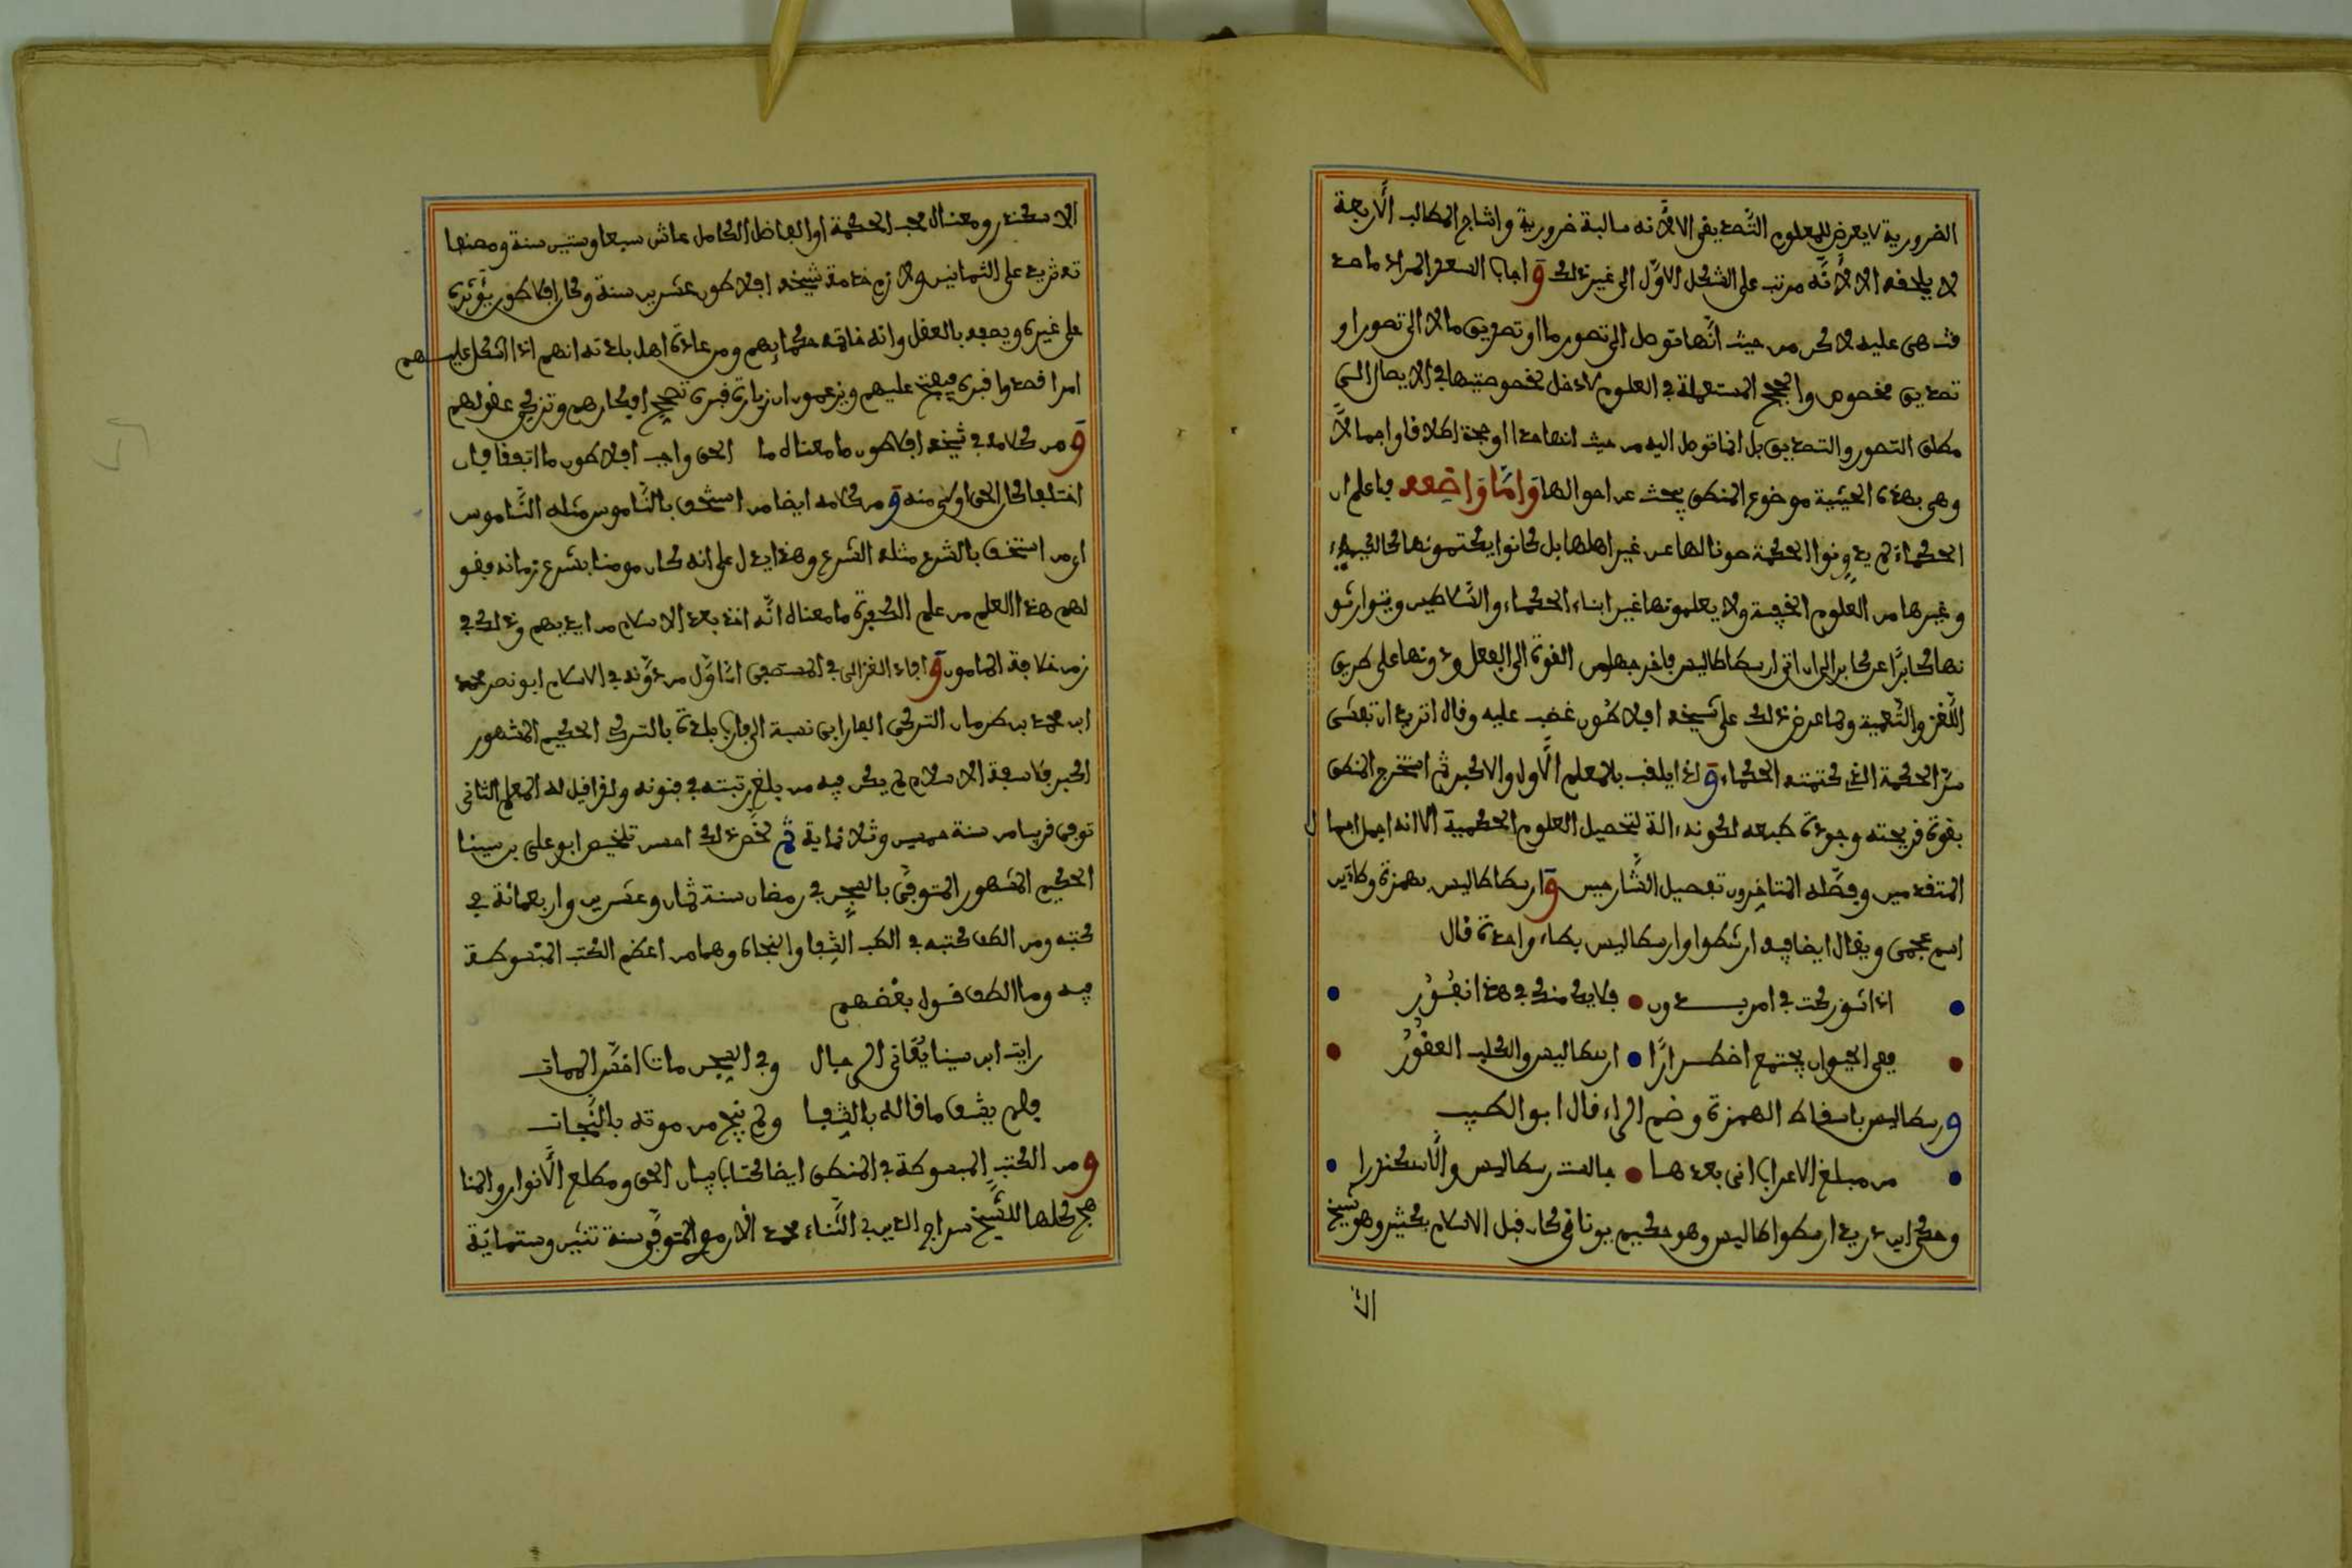 الضرورية لا يعرض للمعلوم التصديقى الا لأنه سالبة ضرورية وانتاج المطالب الأربعة
لا يلحقه الا لأنه مرتب على الشكل الأول الى غير ذلك و اجاب السعد المراد ما صد
قت هى عليه لاكن من حيث أنها توصل الى تصور ما او تصديق ما لا الى تصور او
تصديق مخصوص والحجج المستعملة فى العلوم لا دخل لخصوصيتها فى الايصال الى
مطلق التصور والتصديق بل انما توصل اليه من حيث انها حد او حجة اطلاقا واجمالا
وهى بهذه الحيثية موضوع المنطق يبحث عن احوالها وَأمَّا وَاضِعه فاعلم ان
الحكماء لم يدونوا الحكمة صونا لها عن غير اهلها بل كانوا يكتمونها كالكيمياء
وغيرها من العلوم الخفية ولا يعلمونها غير ابناء الحكماء والسلاطين ويتوارثو
نها كابرًا عن كابر الى ان اتى ارسطاطاليس فاخرجها من القوة الى الفعل ودونها على طريق
اللغز والتعمية ولما عرض ذلك على شيخه افلاطون غضب عليه وقال اتريد ان تفشى
سرّ الحكمة الذى كتمته الحكماء و لذا يلقب بالمعلم الأول والاكبر ثم استخرج المنطق
بقوة قريحته وجودة طبعه لكونه ءالة لتحصيل العلوم الحكمية الا انه اجمل اجما ل
المتقدمين وفصّله المتاخرون تفصيل الشّارحين و ارسطاطاليس بهمزة وطائين
اسم عجمى ويقال ايضا فيه ارسطوا وارسطاليس بطاء واحدة قال
اذا شوركت فى امر بـــدون فلا يك منك فى هذا نفُور
ففى الحيوان يجتمع اضطـرارًا ارسطاليس والكلب العقُور
ورسطاليس باسقاط الهمزة وضم الراء قال ابو الطيب
من مبلغ الاعراب انى بعدهـا جالست رسطاليس والأسكندرا
وحكى ابن دريد ارسطواطاليس وهو حكيم يونانى كان قبل الاسلام بكثير وهو شيخ
الا
الاسكندر ومعناه محب الحكمة او الفاضل الكامل عاش سبعا وستين سنة ومصنفا
ته تزيد على الثمانين ولازم خدمة شيخه افلاطون عشرين سنة وكان افلاطون يؤثره
على غيره ويصفه بالعقل وانه خاتمة حكمائهم ومن عادة اهل بلدته انهم اذا اشكل عليـهم
امر اقصدوا قبره فيفتح عليهم ويزعمون ان زيارة قبره تصحح افكارهم وتزكى عقولهم
و من كلامه فى شيخه افلاطون ما معناه ما الحق واجب افلاطون ما اتفقا فان
اختلفا كان الحق اولى منه و من كلامه ايضا من استخف بالنّاموس قتله النّاموس
اى من استخف بالشرع قتله الشرع وهذا يدل على انه كان مومنا بشرع زمانه فهو
لهم هذا العلم من علم الكفرة ما معناه انّه اخذ بعد الاسلام من ايديهم وذلك فى
زمن خلافة المامون و اجاد الغزالى فى المستصفى انّ اوّل من دوّنه فى الاسلام ابو نصر محمد
ابن محمد بن طرخان التركى الفارابى نسبة الى فاراب بلدة بالترك الحكيم المشهور
اكبر فلاسفة الاسلام لم يكن فيه من بلغ رتبته فى فنونه ولذا قيل له المعلم الثانى
توفى قريبا من سنة خمسين وثلاثماية ثم لخص ذلك احسن تلخيص ابو على بن سينا
الحكيم المشهور المتوفّى بالسِّجن فى رمضان سنة ثمان وعشرين واربعمائة فى
كتبه ومن الطف كتبه فى الطب الشِفا والنجاة وهما من اعظم الكتب المبْسوطـة
فيه وما الطف قول بعْضهم
رايت ابن سينا يُعَانى الرجال وفى السِّجن مات اخسَّ الممات
فلم يشف ما قاله بالشِّفـا ولم ينج من موته بالنَّجات
و من الكتب المبسوطة فى المنطق ايضا كتاب بيان الحق ومطلع الأنوار والمنا
هج كلها للشّيخ سراج الدين ابى الثّناء محمد الارموى المتوفى سنة ثنتين وستمائة